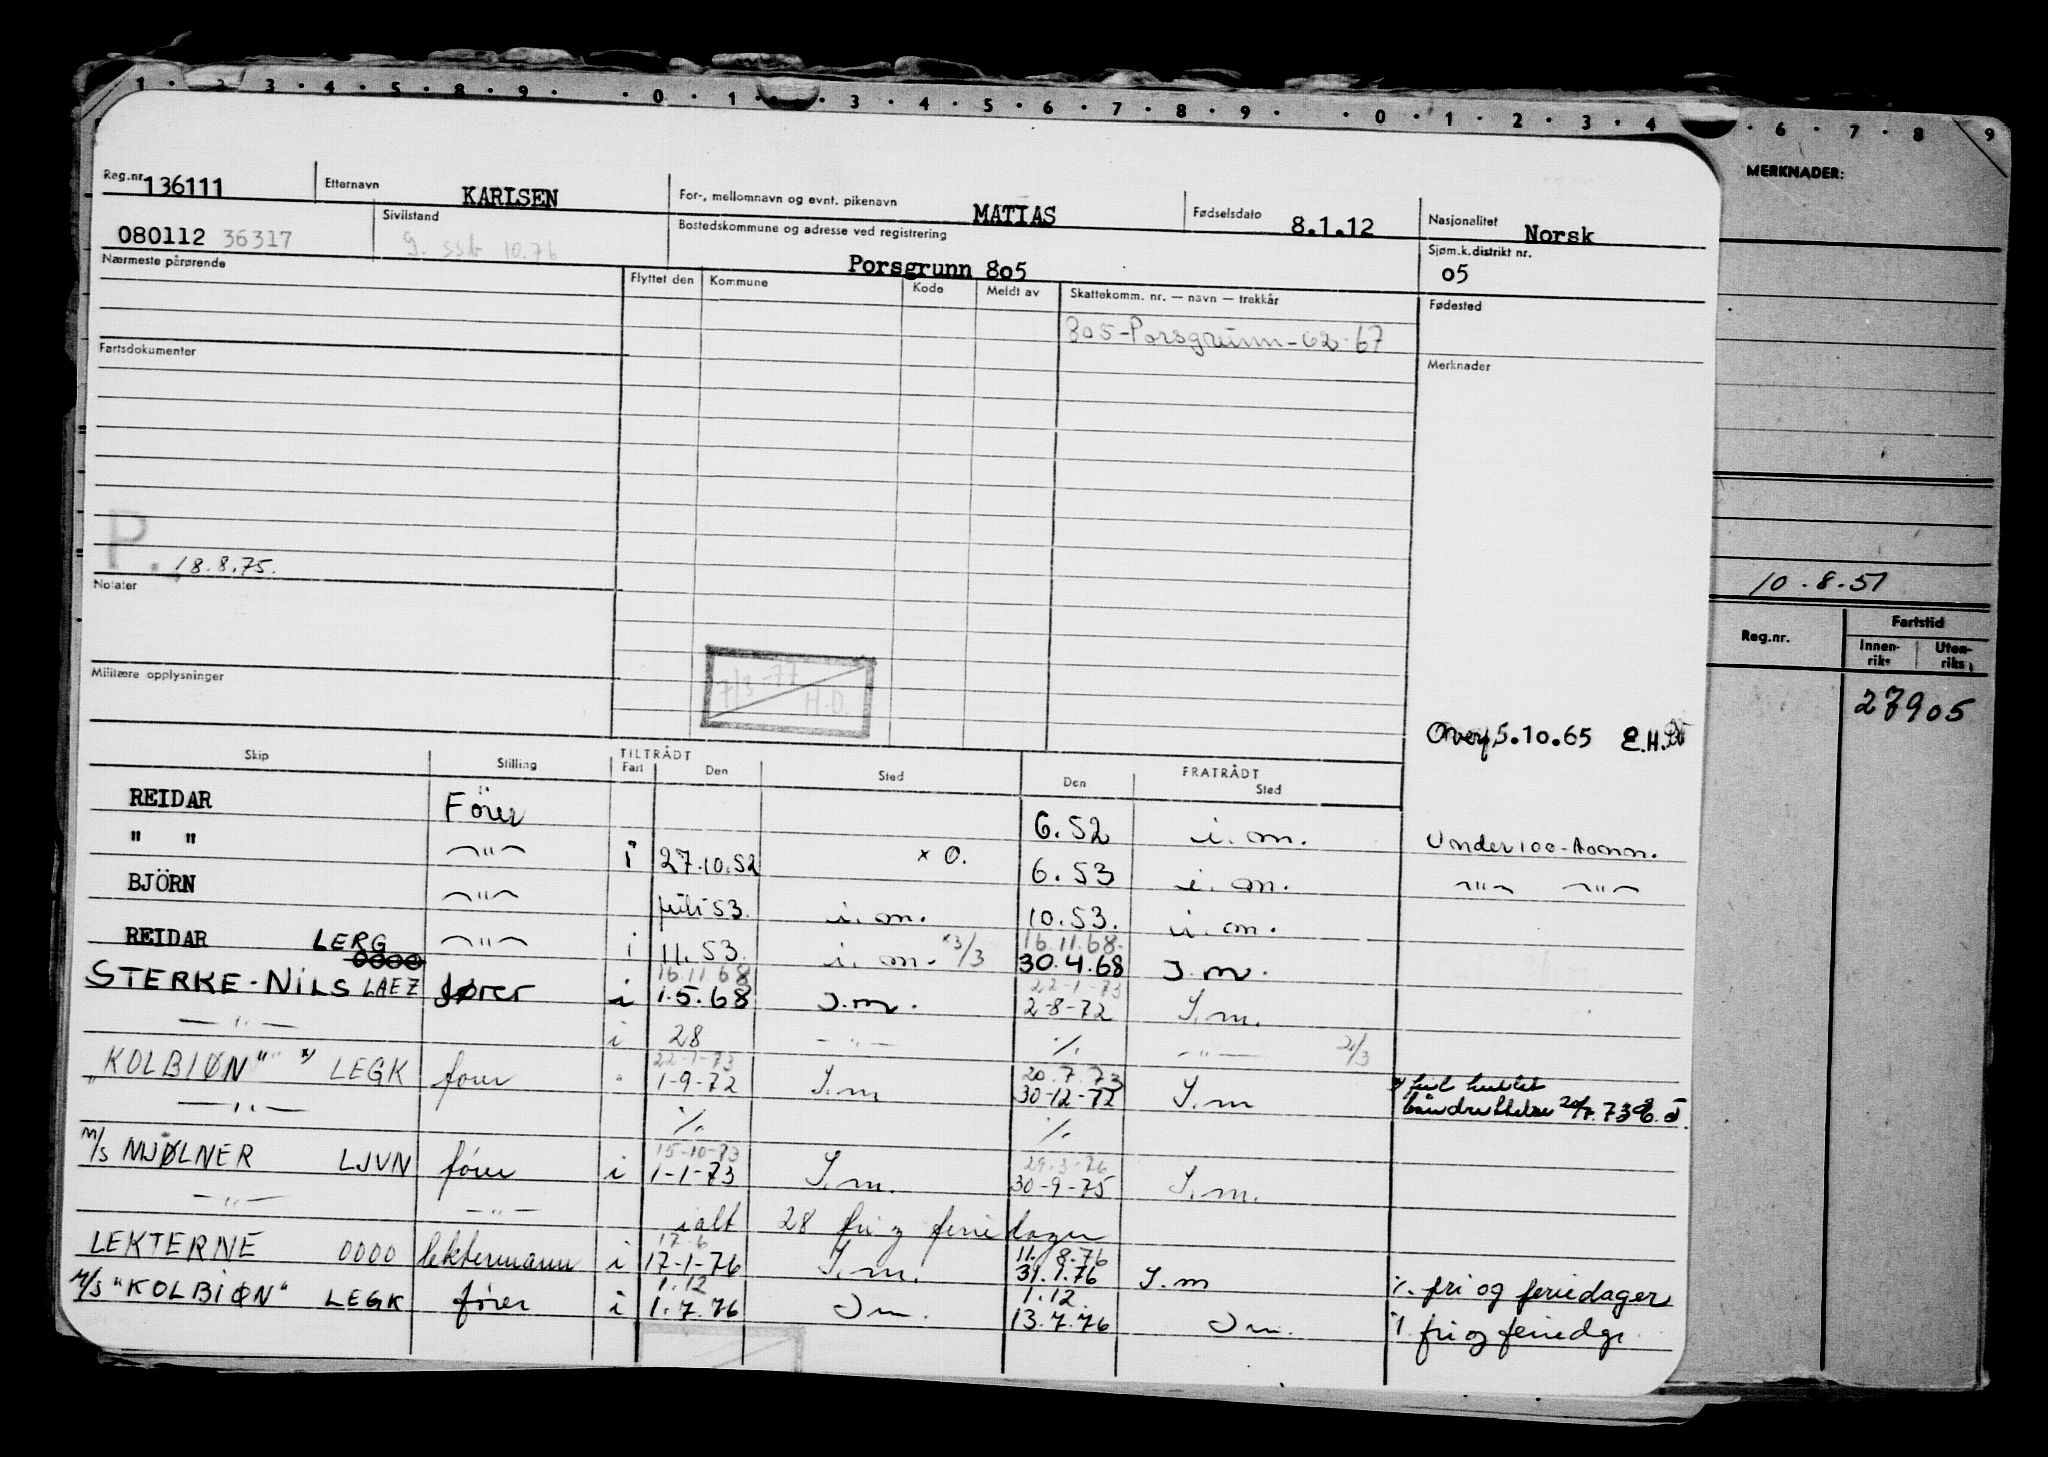 1 · 2 · 3 · 4 · 5 · 8 · 9 · · 0 · 1 · · 3 · 4 · 5 · 6 · 7 · 8 · 9 · · 0 · 1 · 2 · 3 · 4 · 6 · 7 · 8 · 9
MERKNADER:
Reg.nr. 136111 Etternavn KARLSEN For-, mellomnavn og evnt. pikenavn MATIAS Fødselsdato 8.1.12 Nasjonalitet Norsk
080112 36317 Sivilstand g. ssb 10.76 Bostedskommune og adresse ved registrering Porsgrunn 805 Sjøm.k.distrikt nr. 05
Nærmeste pårørende Flyttet den Kommune Kode Meldt av Skattekomm. nr. — navn — trekkår Fødested
805-Porsgrunn-62-67
Fartsdokumenter Merknader
P. 18.8.75.
10.8.51
Notater
Reg.nr. Fartstid
Innen-riks Uten-riks
Militære opplysninger
7/3-77 H.O.
27905
Overf 5.10.65 E.H.
Skip Stilling TILTRÅDT Fart Den Sted FRATRÅDT Den Sted
REIDAR Fører 6.52 i. m. Under 100-tonn.
" " —"— i 27.10.52 x O. 6.53 i. m. —"— —"—
BJÖRN —"— juli 53. i. m. 10.53. i. m.
REIDAR LERG 0000 —"— i 11.53. i. m. x3/3 16.11.68. 30.4.68 I.m.
STERKE-NILS LAEZ fører i 16.11.68 1.5.68 I.m. 22-1-73 2-8-72 I.m.
—"— i 28 —"— % —"— 2/3
"KOLBIØN" x) LEGK fører " 22-1-73 1-9-72 I.m 20.7.73 30-12-72 I.m
—"— % %
M/S MJØLNER LJVN fører i 15-10-73 1-1-73 I.m. 29.3-76 30-9-75 I.m.
—"— —"— ialt 28 fri og feriedager
LEKTERNE 0000 lektermann i 17-6 17-1-76 I.m. 11.8.76 31.1.76 I.m % fri og feriedager
M/S "KOLBIØN" LEGK fører i 1.12 1.7.76 Im. 1.12. 13.7.76 Im. % fri og feriedgr